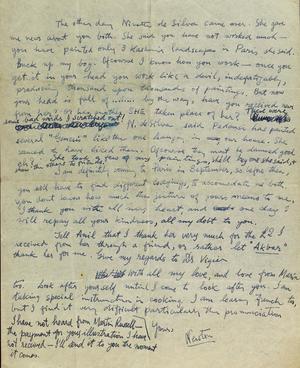 The other day Nivetta de Silva came over. She gave
me news about you both. She said you have not worked much —
you have painted only 3 Kashmir landscapes in Paris she said.
Buck up my boy. Of course I know how you work — once you
get it in your head you work like a devil, indefatigably,
producing thousand upon thousands of paintings. But now
your head is full of ...... by the way, have you received news
from                SHE taken place of her? (
some bad words I scratched out)
              N. de Silva said Padamsee has painted
several "Gemais" like the one hanging in our house. She
said she liked them. Of course they must be damned good
eh? She took a few of my paintings, still
I am definitely coming to Paris in September, so before then,
you will have to find different lodgings, to accomodate us both,
you don't know how much this gesture of yours means to me,
I thank you with all my heart and one day
will repay all your kindness, all my debt to you.
Tell Anil that I thank her very much for the £2 I
received from her through a friend, or rather let "Akbar"
thank her for me. Give my regards to Dr Vigier
With all my love, and love from Maria
too. Look after yourself until I come to look after you. I am
taking special instruction in cooking. I am learning French, too,
but I find it very difficult particularly the pronunciation
I have not heard from Martin Russell —
the payment for your illustration I have
not received — I'll send it to you the moment
it comes.
Yours,
Newton